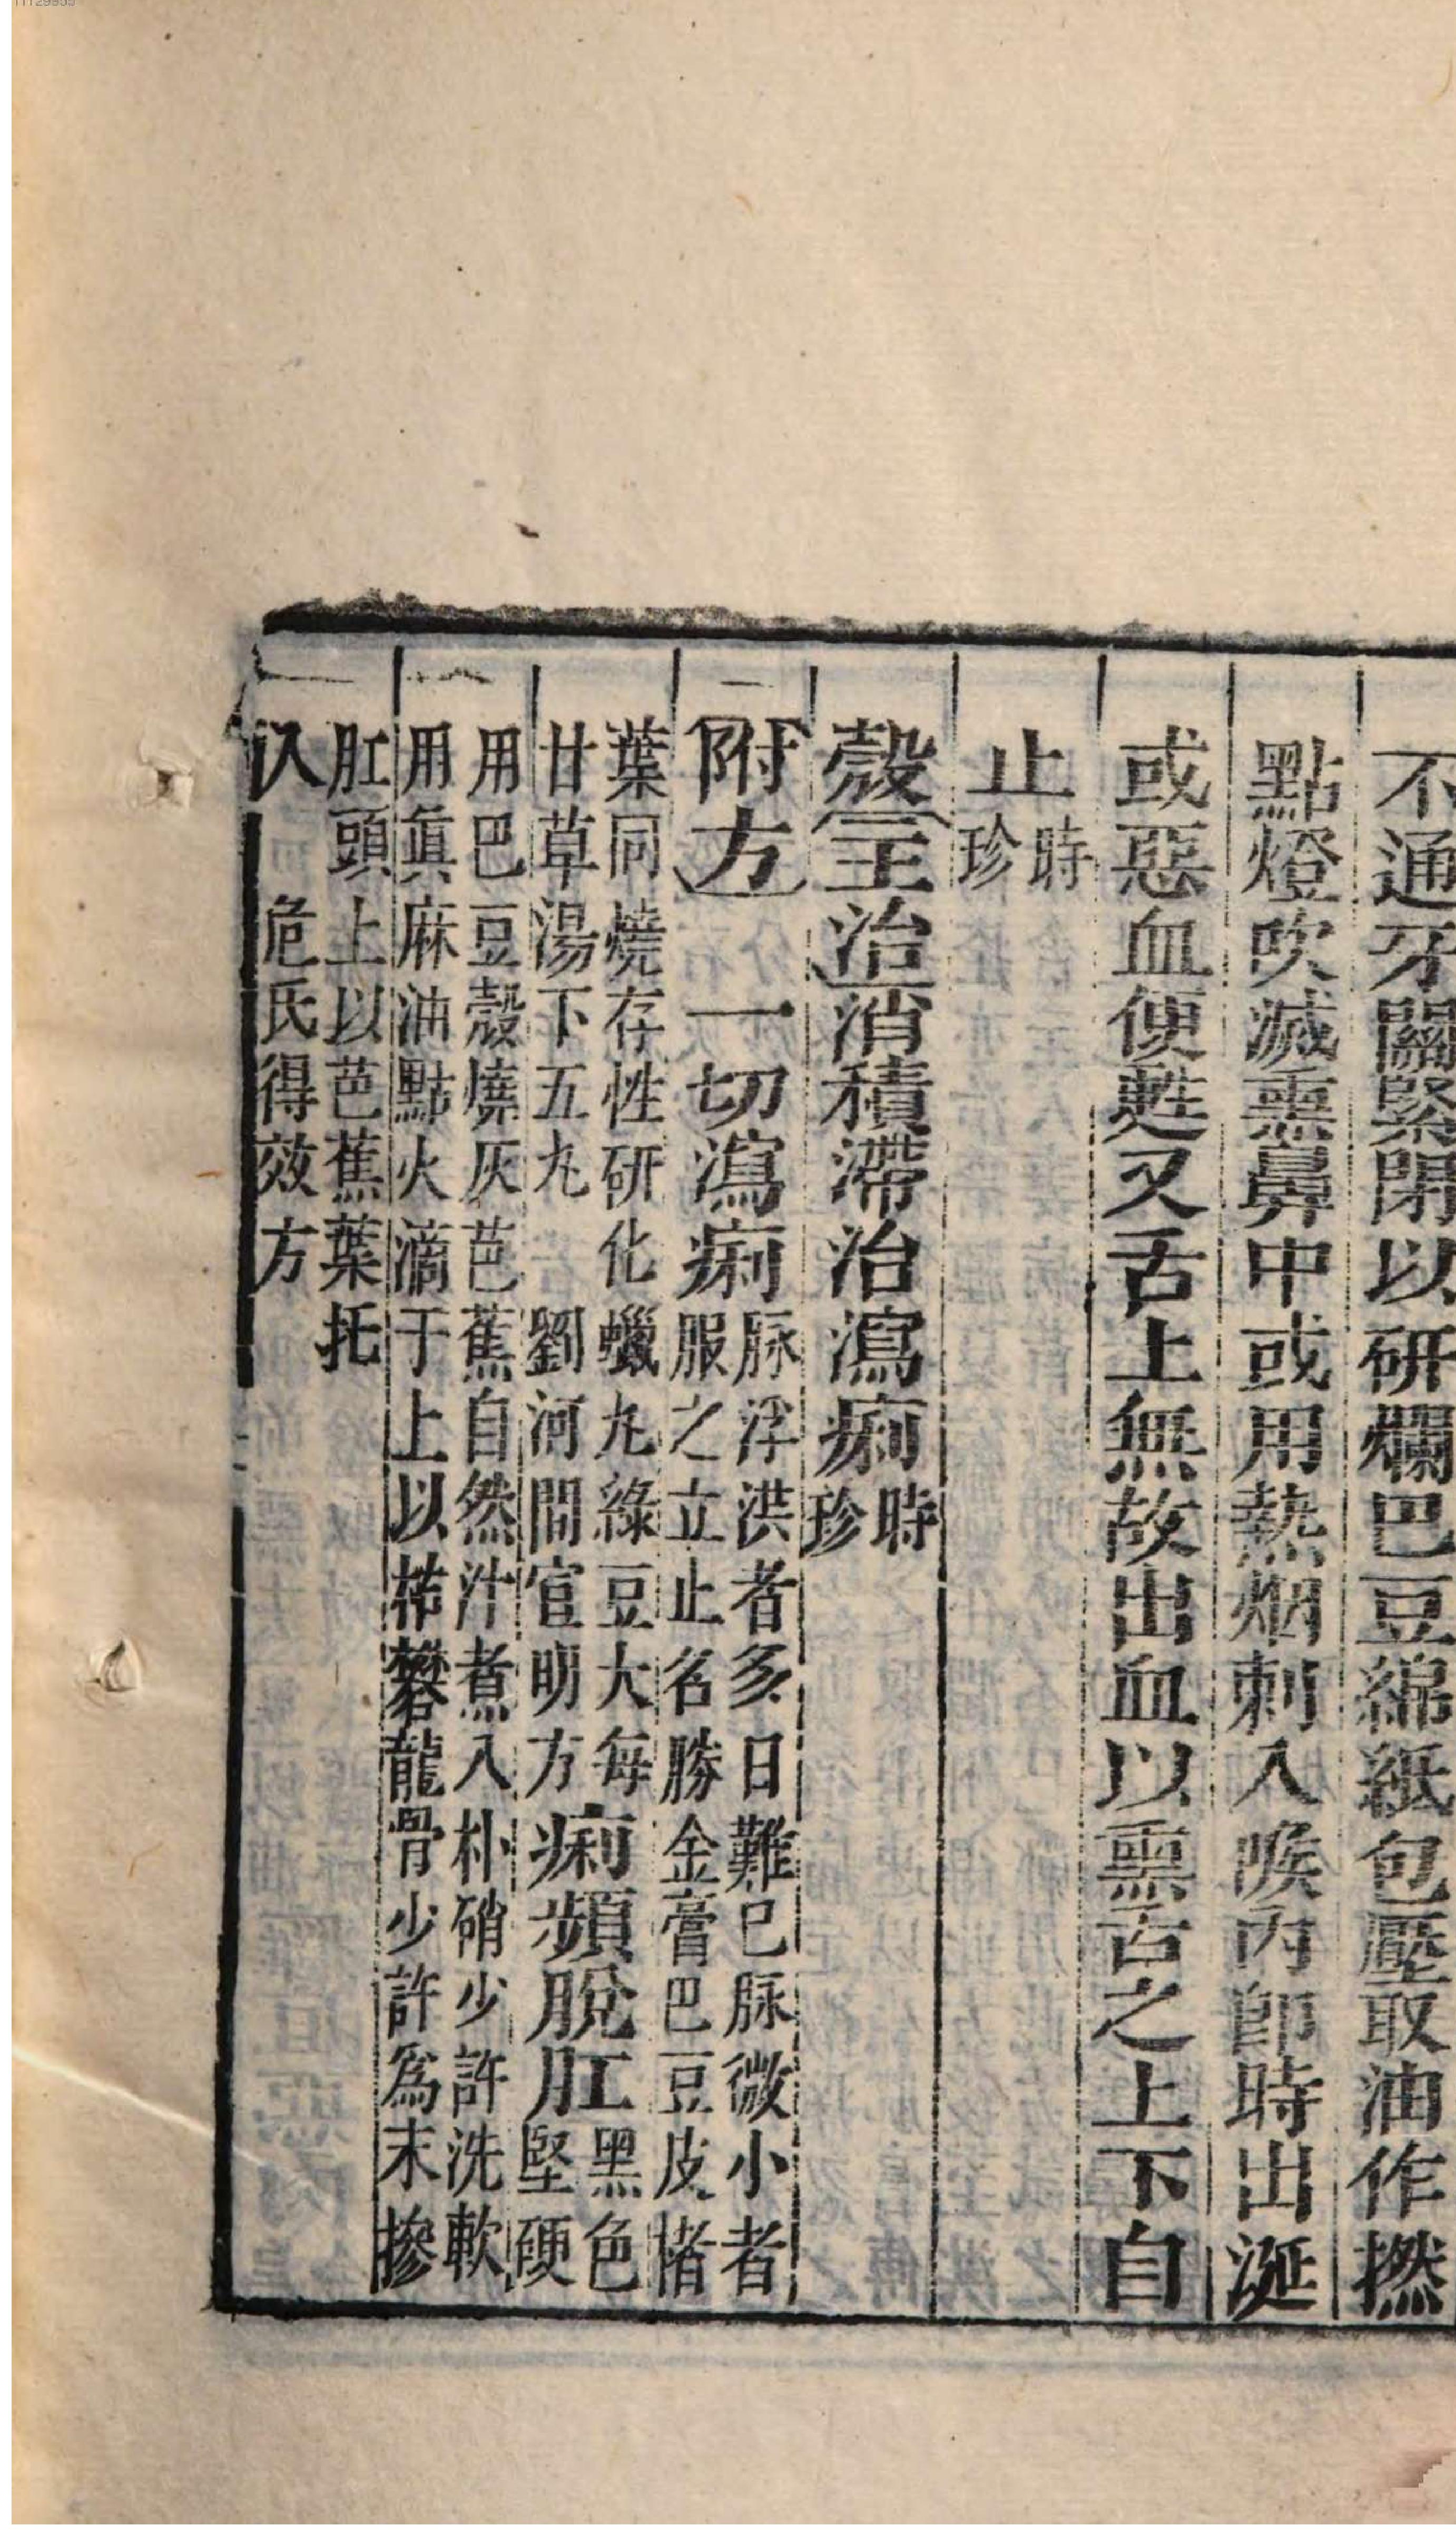 11129955
不通牙關緊閉以研爛巴豆綿紙包壓取油作撚
點燈吹滅熏鼻中或用熱烟刺入喉內卽時出涎
或惡血便甦又舌上無故出血以熏舌之上下自
止時珍
殼主治消積滯治瀉痢時珍
附方一切瀉痢脉浮洪者多日難已脉微小者
服之立止名勝金膏巴豆皮楮
葉同燒存性研化蠟丸綠豆大每
甘草湯下五丸劉河間宣明方
痢頻脫肛黑色
堅硬
用巴豆殼燒灰芭蕉自然汁煮入朴硝少許洗軟
用眞麻油點火滴于上以枯礬龍骨少許爲末摻
肛頭上以芭蕉葉托
入危氏得效方